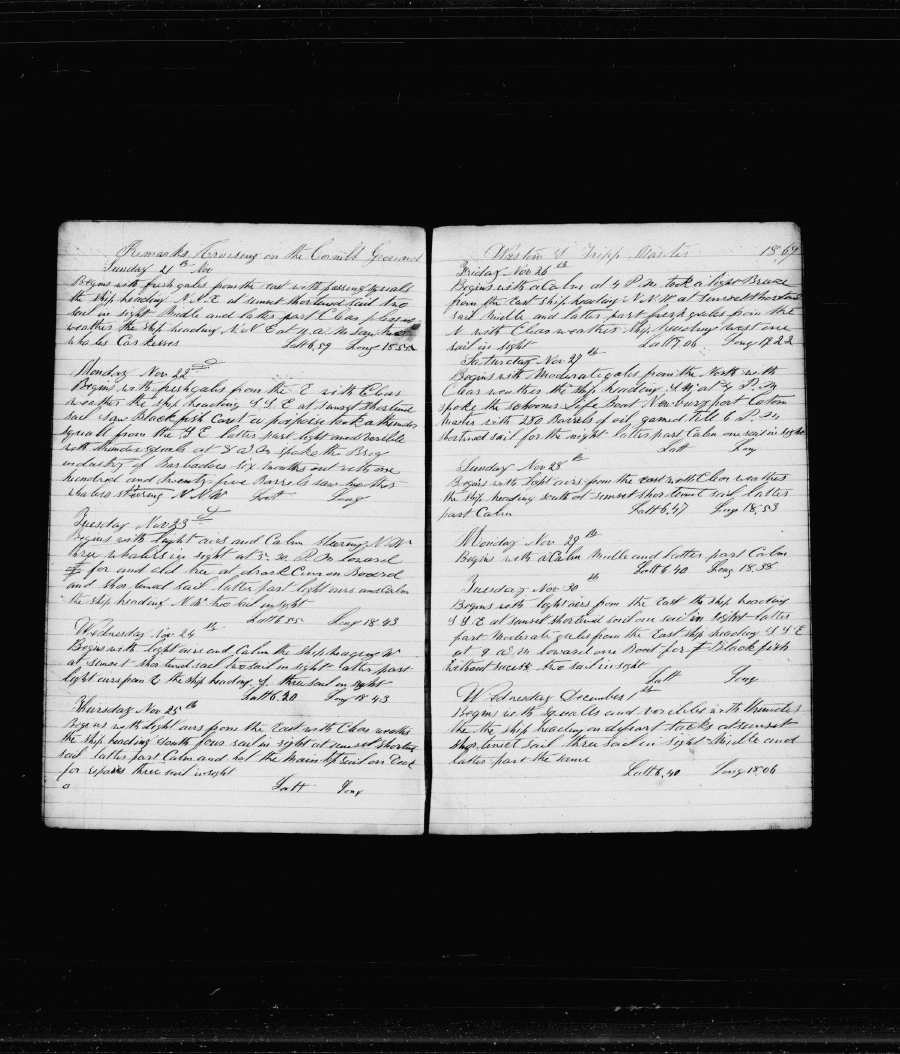 Remarks Cruising on the Cornell Ground
Sunday 21th Nov
Begins with fresh gales from the East with passing squalls
the ship heading N.N.E at sunset shortened sail two
sail in sight Midle and latter part Clear pleasant
weather the ship heading N N E at 11 a.m saw two
whalers Cas
Latt 6.59 Long 18.55
Monday Nov 22d
Begins with fresh gales from the E with Clear
weather the ship heading S S E at sunset shortened
sail saw Blackfish Caret a porpoise took a thunder
squall from the S E latter part light and varible
with thunder squals at 8 a m spoke the Brig
industry of Barbadoes six months out with one
hundred and twenty five Barrels saw two other
whalers stearing N N W Latt Long
Tuesday Nov 23d
Begins with light airs and Calm stearing N W
three whalers in sight at 3 P.M loward
for and did her at drark Cum on Board
and shortened sail latter part light airs and Calm
the ship heading N W two sail in sight
Latt 6.55 Long 18.43
Wednesday Nov 24th
Begins with light airs and Calm the ship heading W
at sunset shortened sail two sail in sight latter part
light airs from E the ship heading three sail in sight
Latt 6.30 Long 18 43
Thursday Nov 25th
Begins with light airs from the East with Clear weather
the ship heading South four sail in sight at sunset shortened
sail latter part Calm and got the main topsail on Deck
for repairs three sail in sight
Latt Long
Weston S Tripp Master 1869
Friday Nov 26th
Begins with a Calm at 4 P.M. took a light Breze
from the East ship heading N.N.W at sunset shortened
sail Midle and latter part fresh gales from the
N with Clear weather ship heading west one
sail in sight Latt 7.06 Long 19 22
Saturday Nov 27th
Begins with Moderate gales from the North with
Clear weather the ship heading S W at 4 P.M
spoke the schooner Life Boat Newburyport Catom
Master with 250 Barrels of oil gamed till 6 P.M.
shortened sail for the night latter part Calm one sail in sight
Latt Long
Sunday Nov 28th
Begins with light airs from the East with Clear weather
the ship heading south at sunset shortened sail latter
part Calm Latt 6.47 Long 18.53
Monday Nov 29th
Begins with a Calm Midle and latter part Calm
Latt 6.40 Long 18.58
Tuesday Nov 30th
Begins with light airs from the East the ship heading
S S E at sunset shortened sail one sail in sight latter
part Moderate gales from the East ship heading S S E
at 9 a.m loward one Boat for Black fish
without sucess two sail in sight
Latt Long
Wednesday December 1th
Begins with squalls and varible with thunder
the the ship heading on difrart tacks at sunset
shortened sail three sail in sight Midle and
latter part the same
Latt 6.40 Long 18.06